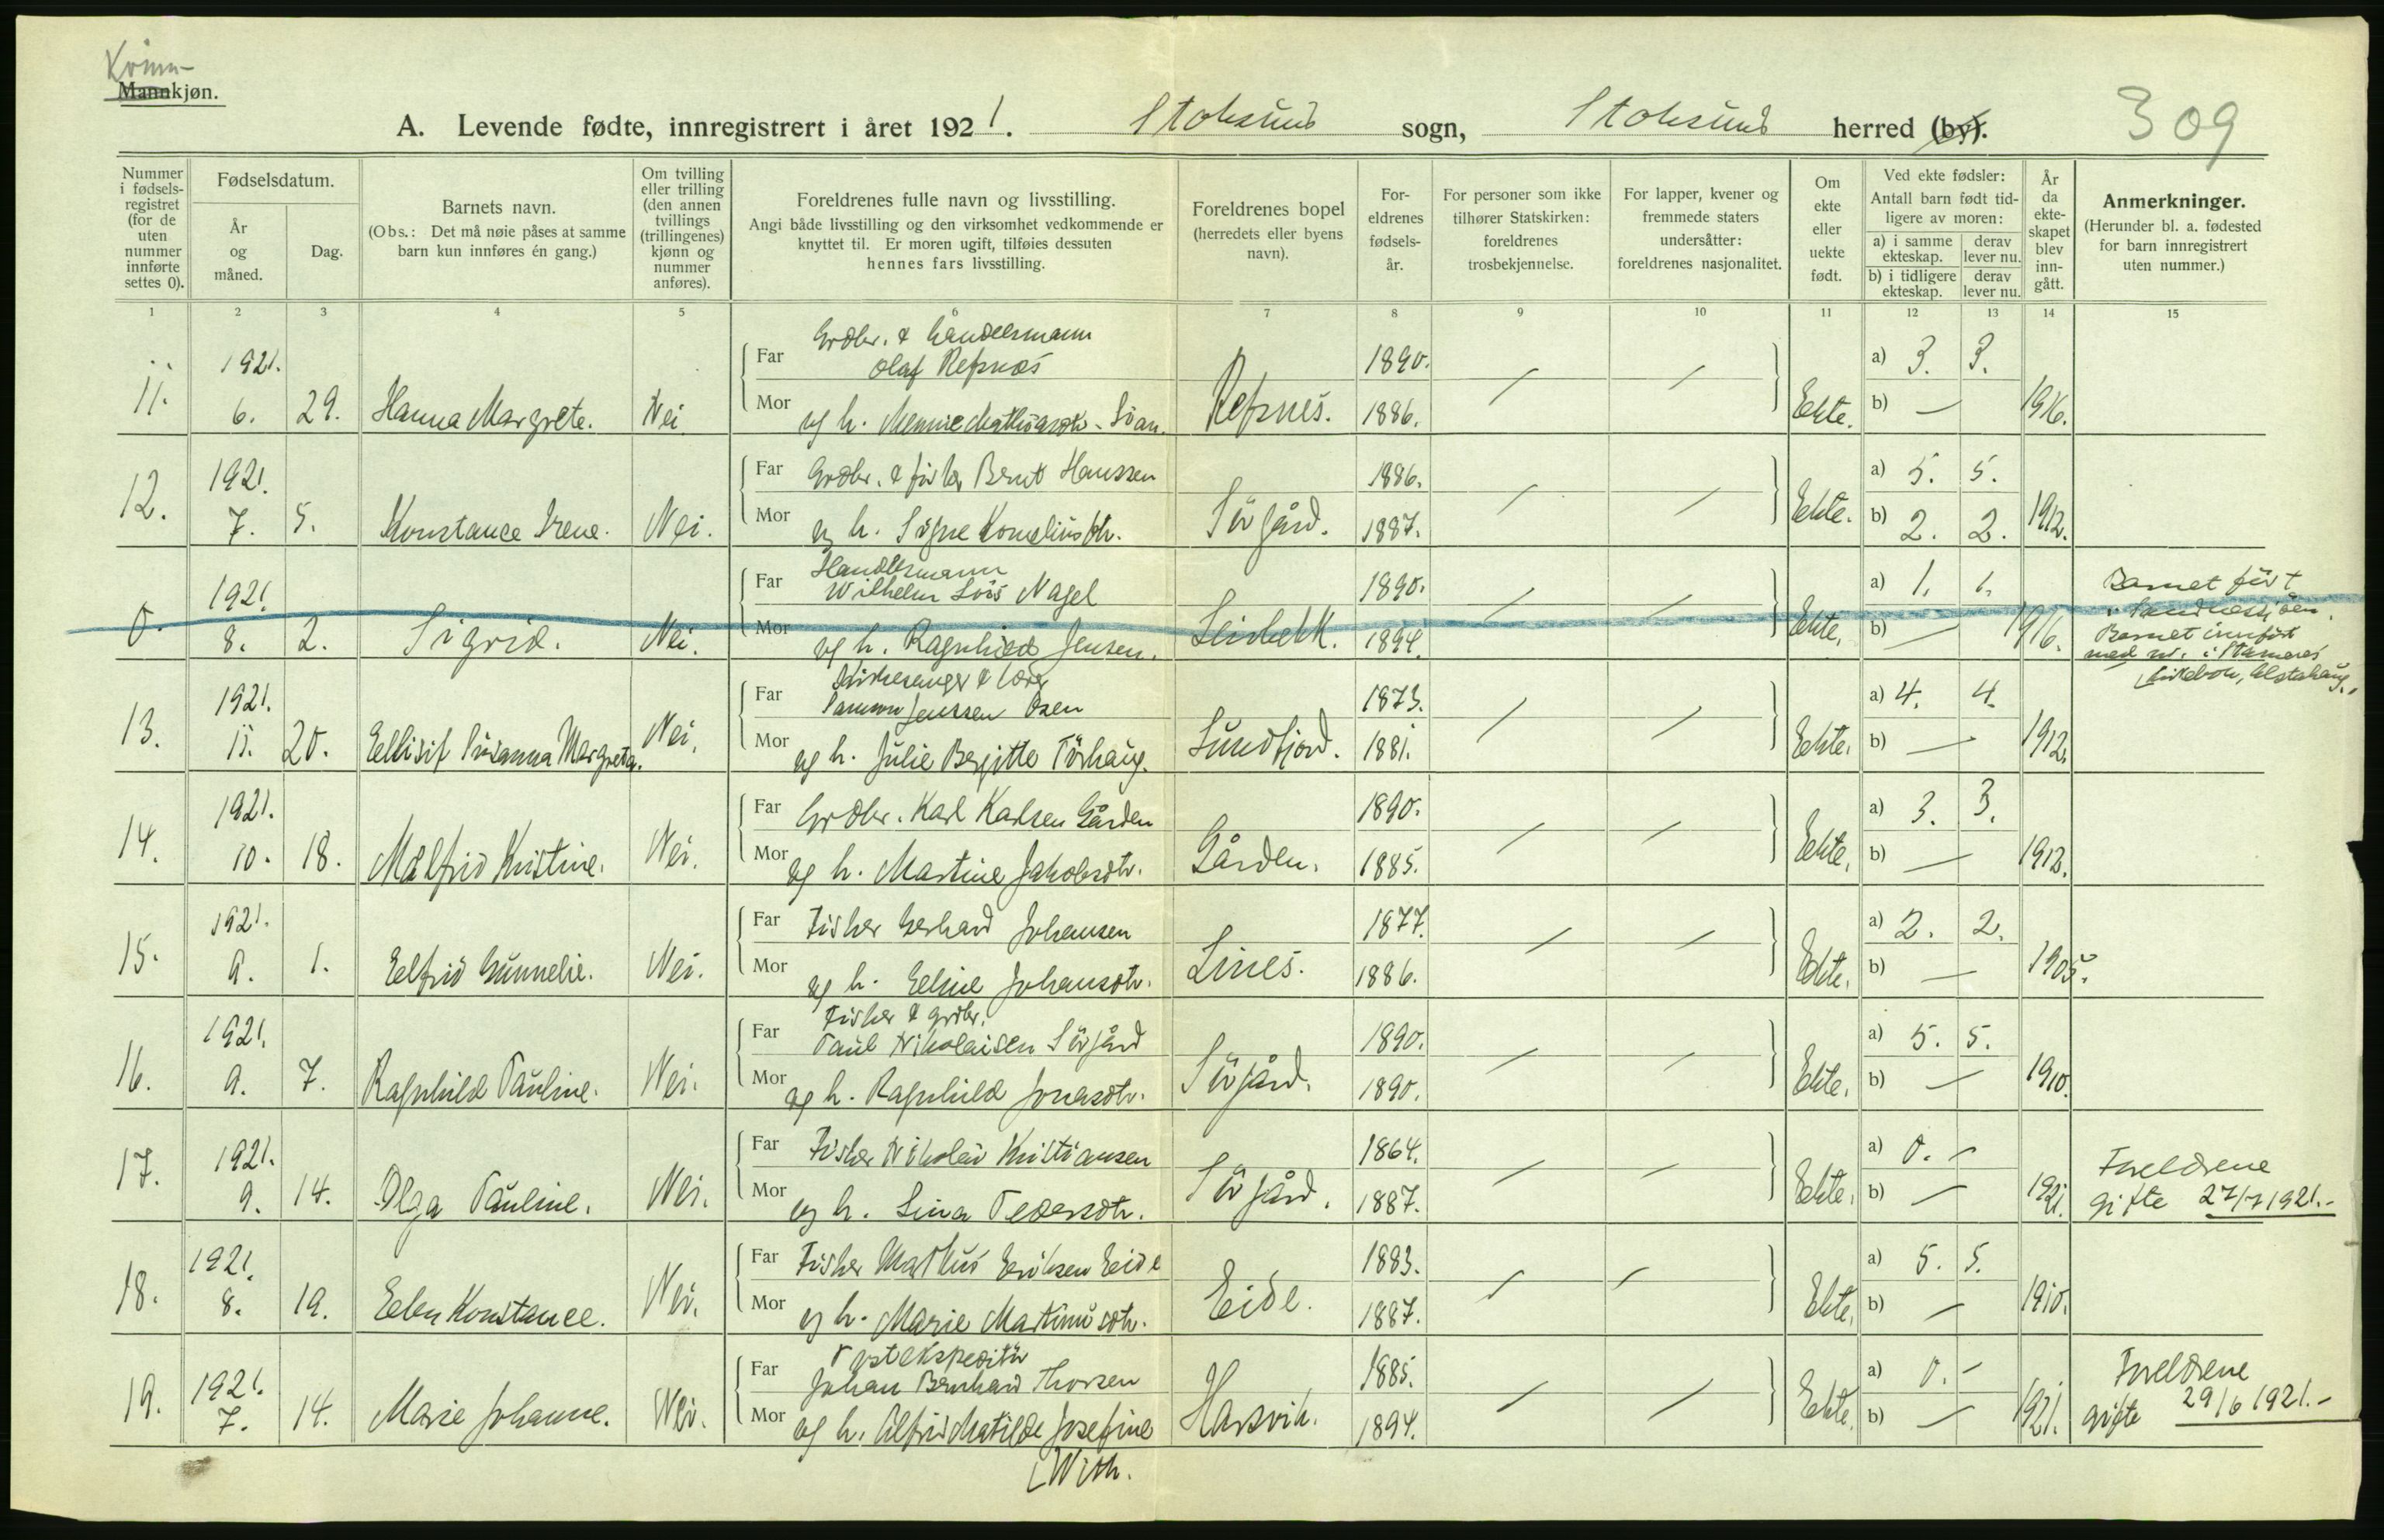 Kvinn-
Mannkjøn.
A. Levende fødte, innregistrert i året 1921. Stoksund sogn, Stoksund herred (by). 309
Nummer i fødsels-registret (for de uten nummer innførte settes 0).
Fødselsdatum.
År og måned.
Dag.
Barnets navn.
(Obs.: Det må nøie påses at samme barn kun innføres én gang.)
Om tvilling eller trilling (den annen tvillings (trillingenes) kjønn og nummer anføres).
Foreldrenes fulle navn og livsstilling.
Angi både livsstilling og den virksomhet vedkommende er knyttet til. Er moren ugift, tilføies dessuten hennes fars livsstilling.
Foreldrenes bopel (herredets eller byens navn).
For-eldrenes fødsels-år.
For personer som ikke tilhører Statskirken: foreldrenes trosbekjennelse.
For lapper, kvener og fremmede staters undersåtter: foreldrenes nasjonalitet.
Om ekte eller uekte født.
Ved ekte fødsler:
Antall barn født tid-ligere av moren:
a) i samme ekteskap. derav lever nu.
b) i tidligere ekteskap. derav lever nu.
År da ekte-skapet blev inn-gått.
Anmerkninger.
(Herunder bl. a. fødested for barn innregistrert uten nummer.)
1 2 3 4 5 6 7 8 9 10 11 12 13 14 15
Grdbr. & handelsmann
1921. Far Olaf Refsnes 1890. a) 3. 3.
11. 6. 29. Hanna Margrete. Nei Mor og h. Refsnes. 1886. Ekte. b) — 1916.
1921. Far Grdbr. & fisker Bernt Hanssen 1886. a) 5. 5.
12. 7. 5. Konstance Irene. Nei. Mor og h. Signe Korneliusdtr. Sörgård. 1887. Ekte. b) 2. 2. 1912.
Handelsmann
1921. Far Wilhelm Nagel 1890. a) 1. 1. Barnet født
i Sandnessjöen.
0. 8. 2. Sigrid. Nei. Mor og h. Ragnhild Jensen. 1894. Ekte. b) — 1916. Barnet innført
med nr. i
kirkebok, Alstahaug.
Kirkesanger & lærer
1921. Far Jenssen Osen 1873. a) 4. 4.
13. 11. 20. Ellisif Susanna Margreta. Nei. Mor og h. Julie Bergitte Sundfjord. 1881. Ekte. b) — 1912.
1921. Far Grdbr. Karl Karlsen Gården 1890. a) 3. 3.
14. 10. 18. Målfrid Kristine. Nei. Mor og h. Martine Jakobsdtr. Gården. 1885. Ekte. b) — 1912.
1921. Far Fisker Gerhard Johansen 1877. a) 2. 2.
15. 9. 1. Elfrid Gunnelie. Nei. Mor og h. Eline Johansdtr. Lines. 1886. Ekte. b) — 1905.
Fisker & grdbr.
1921. Far Paul Nikolaisen Sörgård 1890. a) 5. 5.
16. 9. 7. Ragnhild Pauline. Nei. Mor og h. Ragnhild Jonasdtr. Sörgård. 1890. Ekte. b) — 1910.
1921. Far Fisker Nikolai Kristiansen 1864. a) 0. – Foreldrene
17. 9. 14. Olga Pauline. Nei. Mor og h. Lina Pedersdtr. Sörgård. 1887. Ekte. b) — 1921. gifte 27/7 1921.–
1921. Far Fisker Markus Eriksen Eide 1883. a) 5. 5.
18. 8. 19. Ellen Konstance. Nei. Mor og h. Marie Martinusdtr. Eide. 1887. Ekte. b) — 1910.
Postekspeditör
1921. Far Johan Bernhard Thorsen 1885. a) 0. – Foreldrene
19. 7. 14. Marie Johanne. Nei. Mor og h. Alfrid Matilde Josefine Harsvik. 1894. Ekte. b) — 1921. gifte 29/6 1921.–